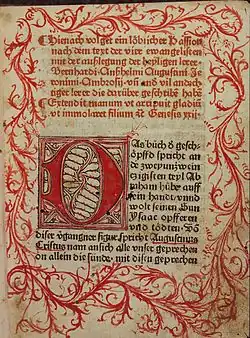 Hienach volget ein löblicher Passion
nach dem text der vier ewangelisten
mit der außlegung der heyligen lerer
Bernhardi Anßhelmi Augustini Je
ronimi Ambrosij vñ and vil andech
tiger lerer die darüber geschribẽ habẽ
Extendit manum vt arripuit gladiũ
vt immolaret filium &c Genesis xxij
DAs bůch d gesch
öpffd spricht an
dem zweyundzwein
zigisten teyl Ab
raham hübe auff
sein hande, vnnd
wolt seinen Sun
Ysaac opfferen
vnd tödten. Võ
diser vgangner figur spricht Augustinus
Cristus nam ansich alle vnser geprechen
on allein die sünde, mit disen geprechen